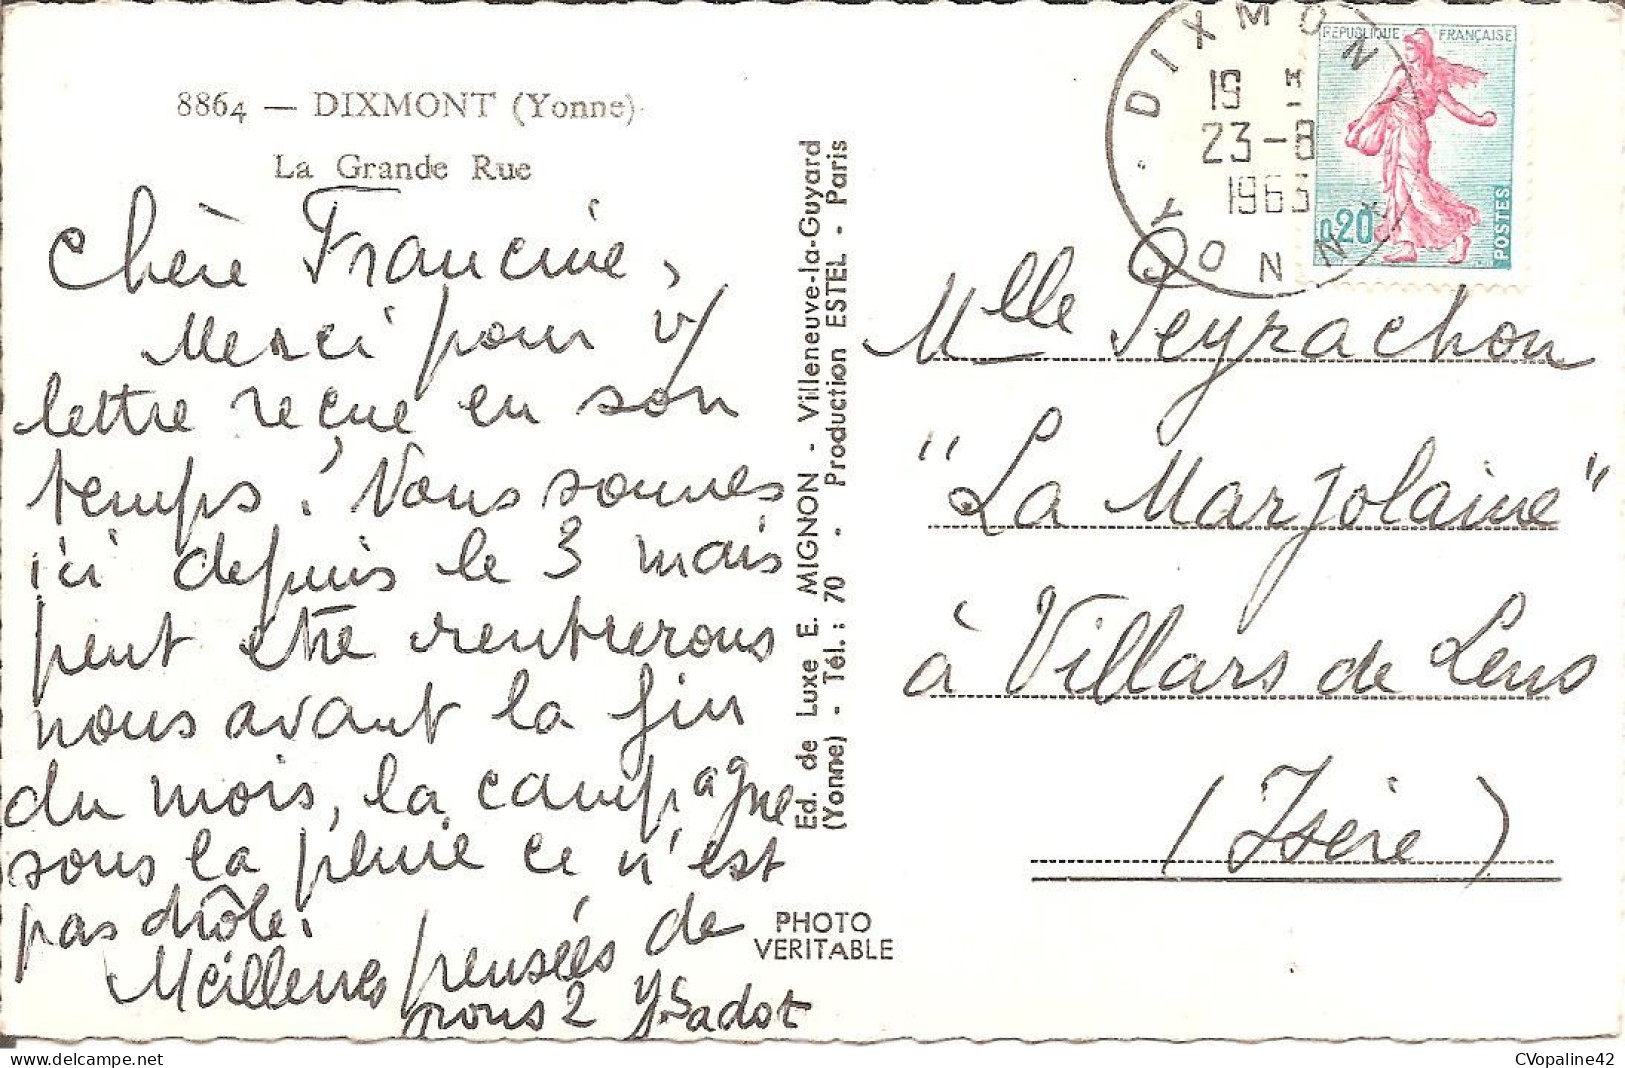 8864 — DIXMONT (Yonne)
La Grande Rue
Chère Francine,
Merci pour v/
lettre reçue en son
temps. Nous sommes
ici depuis le 3 mais
peut être rentrerons
nous avant la fin
du mois, la campagne
sous la pluie ce n'est
pas drôle.
Meilleures pensées de
nous 2 YSadot
Ed. de Luxe E. MIGNON - Villeneuve-la-Guyard
(Yonne) - Tél. : 70 - Production ESTEL - Paris
PHOTO
VERITABLE
DIXMONT
19 H
23-8
1963
YONNE
REPUBLIQUE FRANÇAISE
0,20
POSTES
Mlle Peyrachon
"La Marjolaine"
à Villars de Lens
(Isère)
CVopaline42